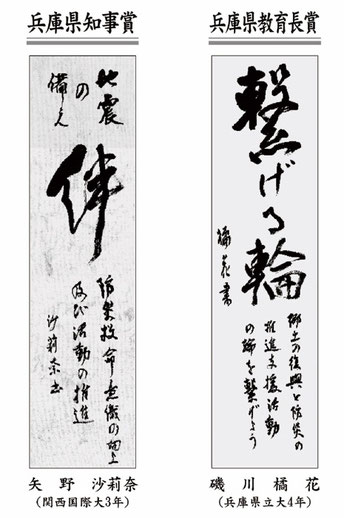 兵庫県知事賞
地震
の
備え
絆
防災救命意識の向上
及び活動の推進
沙莉奈書
矢野 沙莉奈
(関西国際大3年)
兵庫県教育長賞
繋げる輪
橘花書
郷土の復興と防災の
推進支援活動
の輪を繋げよう
磯川 橘花
(兵庫県立大4年)